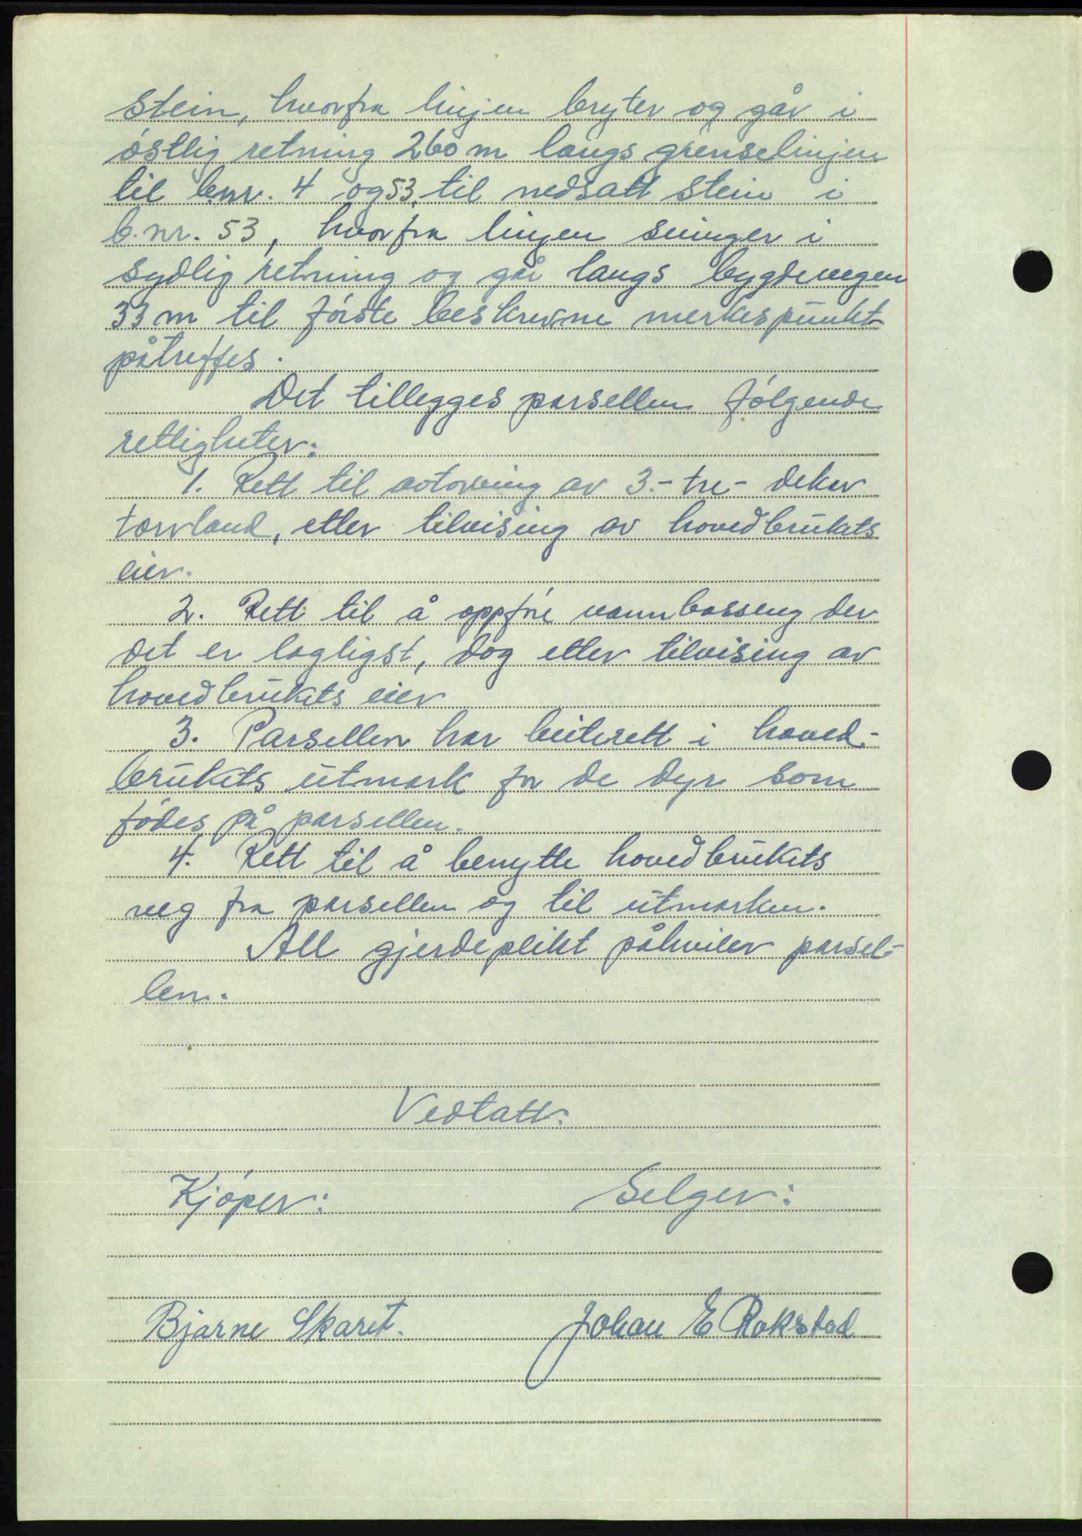 stein, hvorfra linjen bryter og går i
østlig retning 260 m langs grenselinjen
til bnr. 4 og 53, til nedsatt stein i
b.nr. 53, hvorfra linjen svinger i
sydlig retning og går langs bygdevegen
33 m til første beskrevne merkespunkt
påtreffes.
Det tillegges parsellen følgende
rettigheter:
1. Rett til avtorving av 3.- tre- dekar
torvland, etter tilvising av hovedbrukets
eier.
2. Rett til å oppføre vannbasseng der
det er lagligst, dog etter tilvising av
hovedbrukets eier
3. Parsellen har beiterett i hoved-
brukets utmark for de dyr som
fødes på parsellen.
4. Rett til å benytte hovedbrukets
veg fra parsellen og til utmarken.
All gjerdeplikt påhviler parsel-
len.
Vedtatt:
Kjøper: Selger:
Bjarne Skaret. Johan E Rokstad